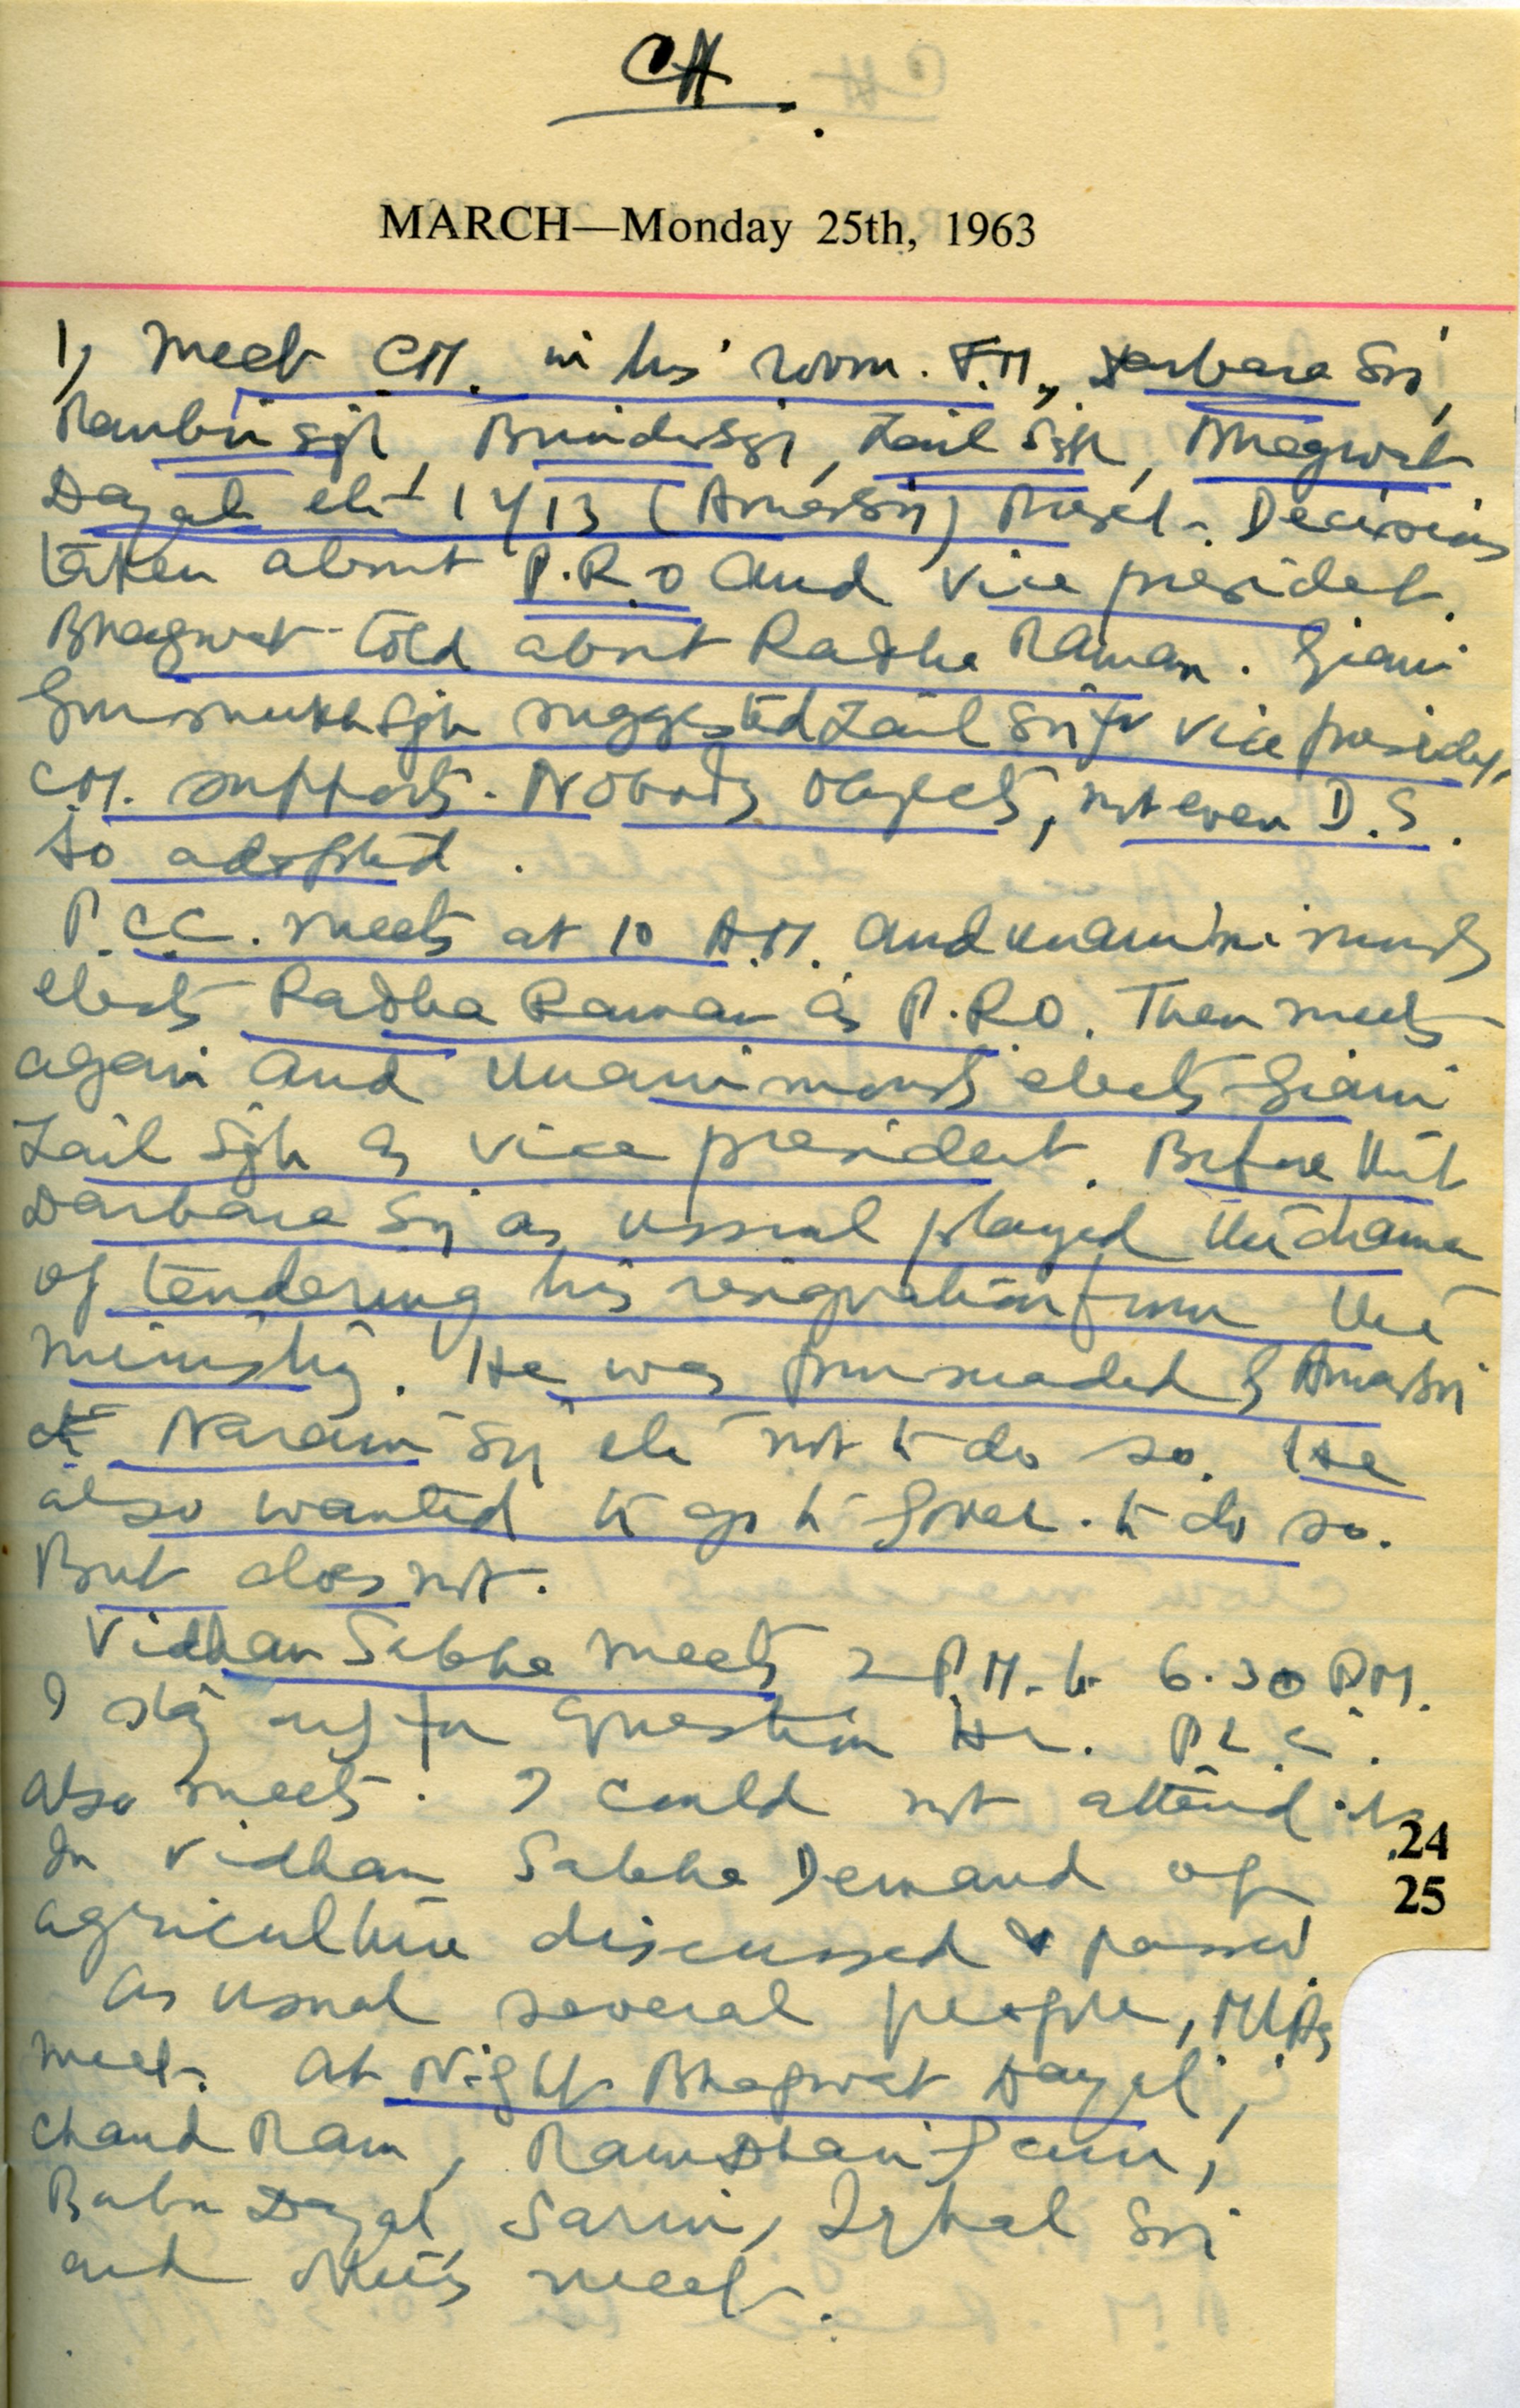 CH.
MARCH—Monday 25th, 1963
1) Meet C.M. in his room. F.M., Darbara Sri,
Ranbir Sgh, Brindr Sgh, Zail Sgh, Bhagwat
Dayal etc (Amar Sri) . Decisions
taken about P.R.O and Vice president.
Bhagwat told about Radha Raman. Giani
Gurmukh Sgh suggested Zail Sri for Vice presidt,
C.M. supports. Nobody objects, not even D.S.
So adopted.
P.C.C. meets at 10 A.M. and unanimously
elects Radha Raman as P.R.O. Then meets
again and unanimously elects Giani
Zail Sgh as Vice president. Before that
Darbara Sri as ussual played the drama
of tendering his resignation from the
ministry. He was pursuaded by Amar Sri
Narain Sri etc not to do so. He
also wanted to go to Gover. to do so.
But does not.
Vidhan Sabha meets 2 P.M. to 6.30 P.M.
I stay only for Question Hr.
also meets. I could not attend it.
In Vidhan Sabha Demand of
24
25
agriculture discussed & passed.
As usual several people, MLAs
meet. At Night Bhagwat Dayal,
Chand Ram,
Babu Dayal, Sarin, Iqbal Sri
and others meet.